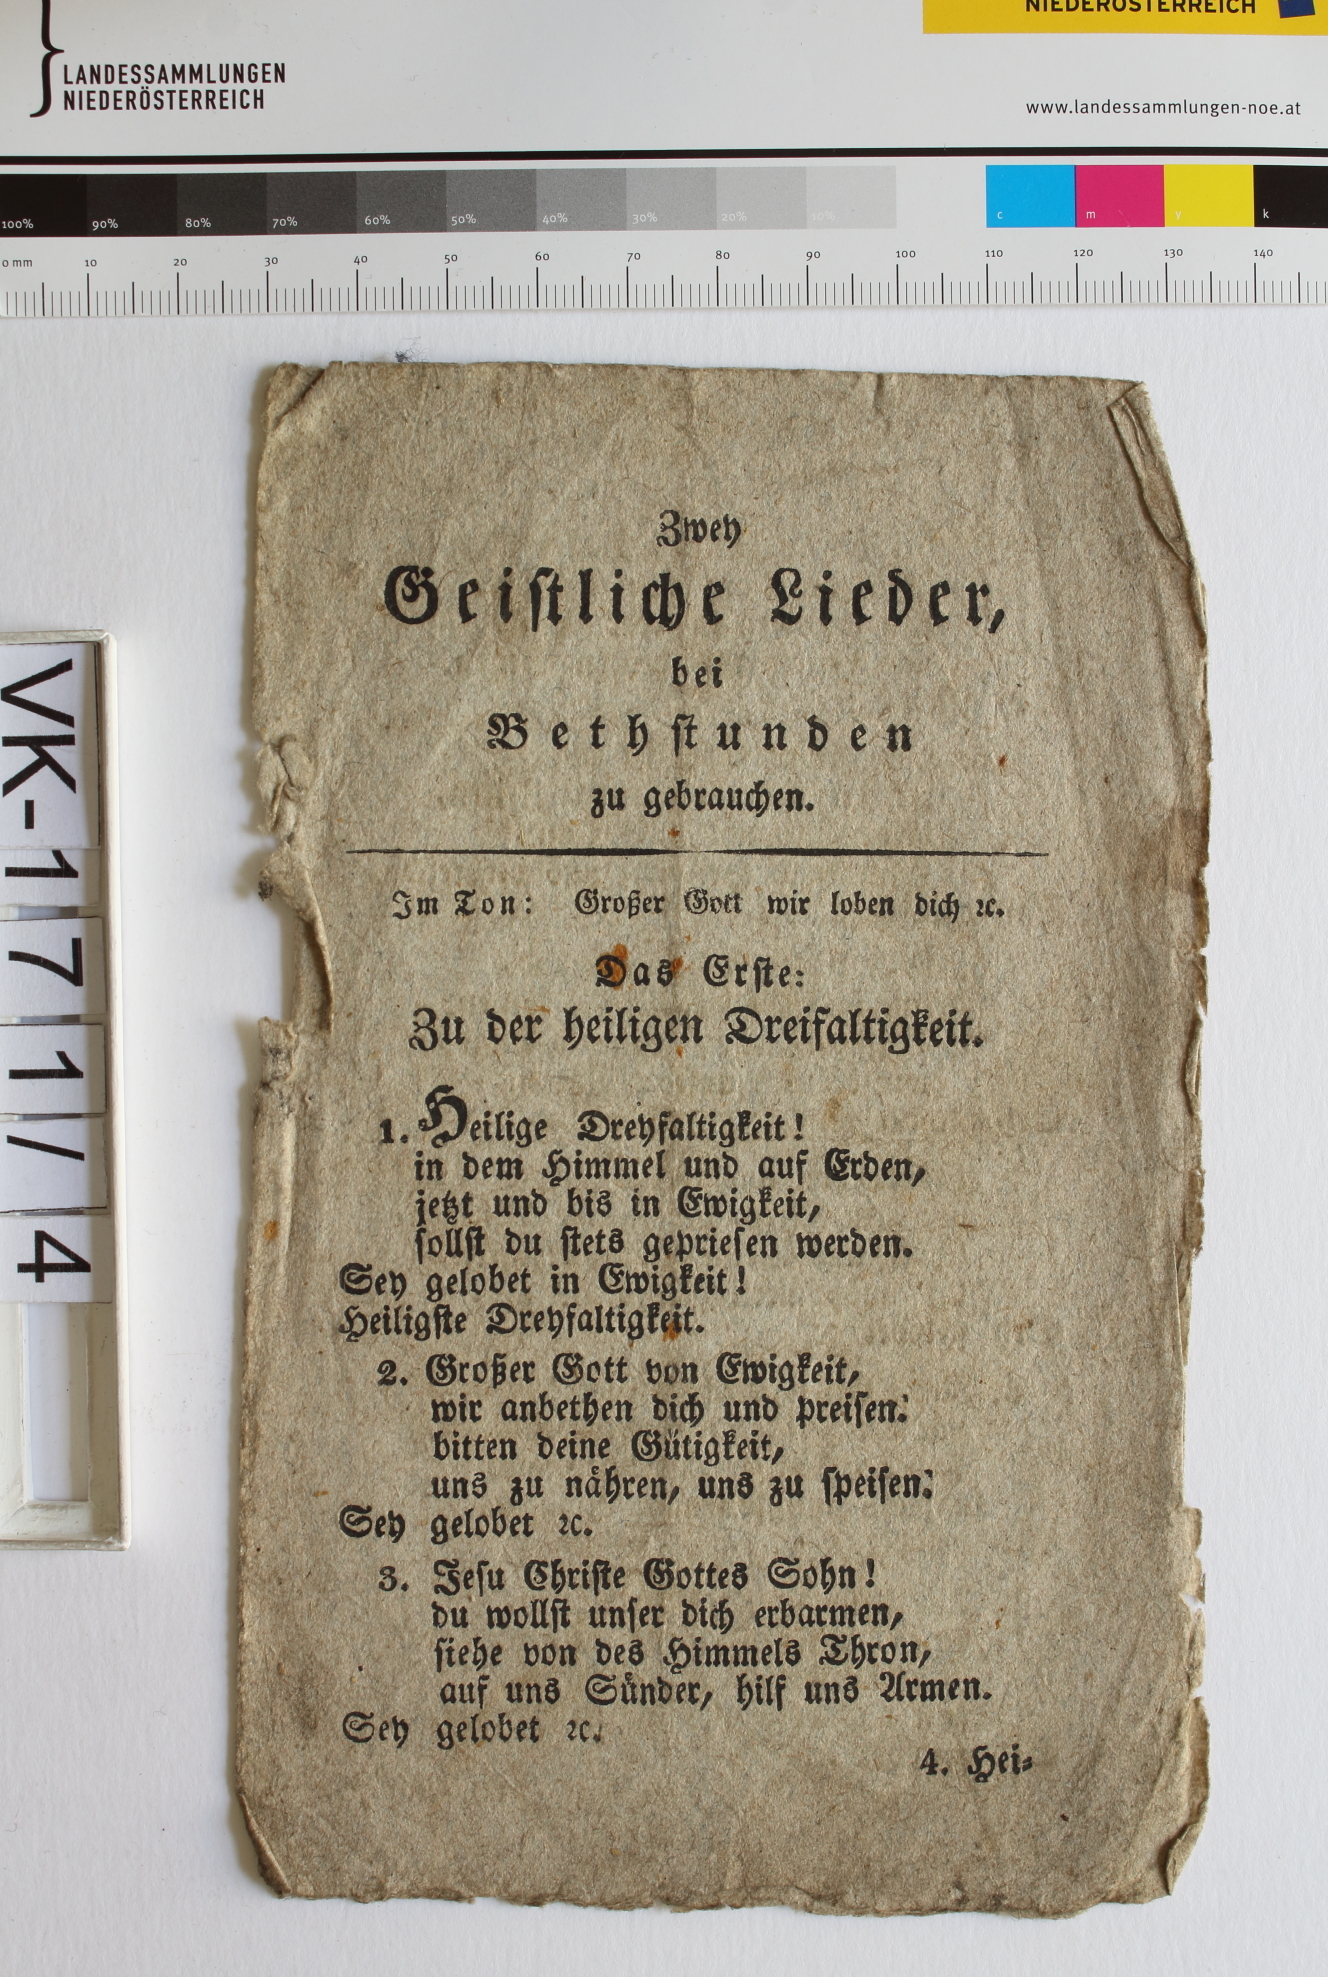 NIEDERÖSTERREICH
LANDESSAMMLUNGEN
NIEDERÖSTERREICH
www.landessammlungen-noe.at
100% 90% 80% 70% 60% 50% 40% 30% 20% 10% c m y k
0 mm 10 20 30 40 50 60 70 80 90 100 110 120 130 140
VK-1771/4
Zwey
Geistliche Lieder,
bei
Bethstunden
zu gebrauchen.
Im Ton: Großer Gott wir loben dich ꝛc.
Das Erste:
Zu der heiligen Dreifaltigkeit.
1. Heilige Dreyfaltigkeit!
in dem Himmel und auf Erden,
jetzt und bis in Ewigkeit,
sollst du stets gepriesen werden.
Sey gelobet in Ewigkeit!
Heiligste Dreyfaltigkeit.
2. Großer Gott von Ewigkeit,
wir anbethen dich und preisen:
bitten deine Gütigkeit,
uns zu nähren, uns zu speisen:
Sey gelobet ꝛc.
3. Jesu Christe Gottes Sohn!
du wollst unser dich erbarmen,
siehe von des Himmels Thron,
auf uns Sünder, hilf uns Armen.
Sey gelobet ꝛc.
4. Hei-